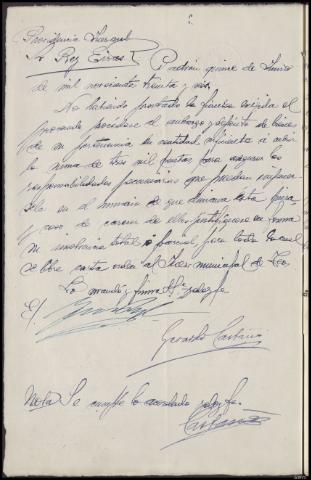 Providencia Juez
Sr Rey Eiras. Padrón quince de Junio
de mil novecientos treinta y seis.
No habiendo prestado la fianza exigida el
procesado procédase al embargo y depósito de bienes
de su pertenencia en cantidad suficiente a cubrir
la suma de tres mil pesetas para asegurar las
responsabilidades pecuniarias que puedan imponer
sele en el sumario de que dimana esta pieza
y caso de carecer de ellos justifíquese en forma
su insolvencia total o parcial, para todo lo cual
se libre carta orden al Juez municipal de Teo.
Lo mandó y firma S.Sª doy fe.
E/
Gerardo
Nota Se cumple lo acordado doy fe.